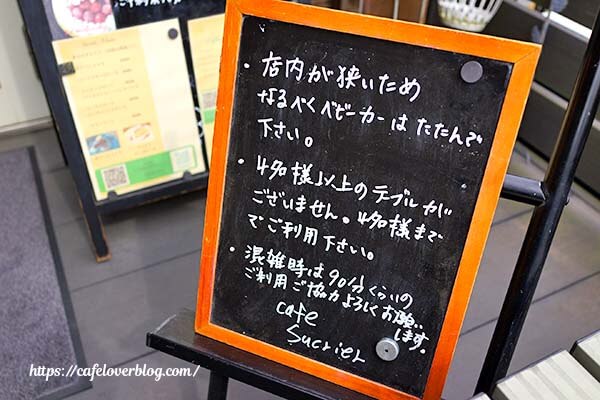 ・店内が狭いため
なるべくベビーカーはたたんで
下さい。
・4名様以上のテーブルが
ございません。4名様まで
でご利用下さい。
・混雑時は90分くらいの
ご利用ご協力よろしくお願い
します。
cafe
Sucrier
https://cafeloverblog.com/